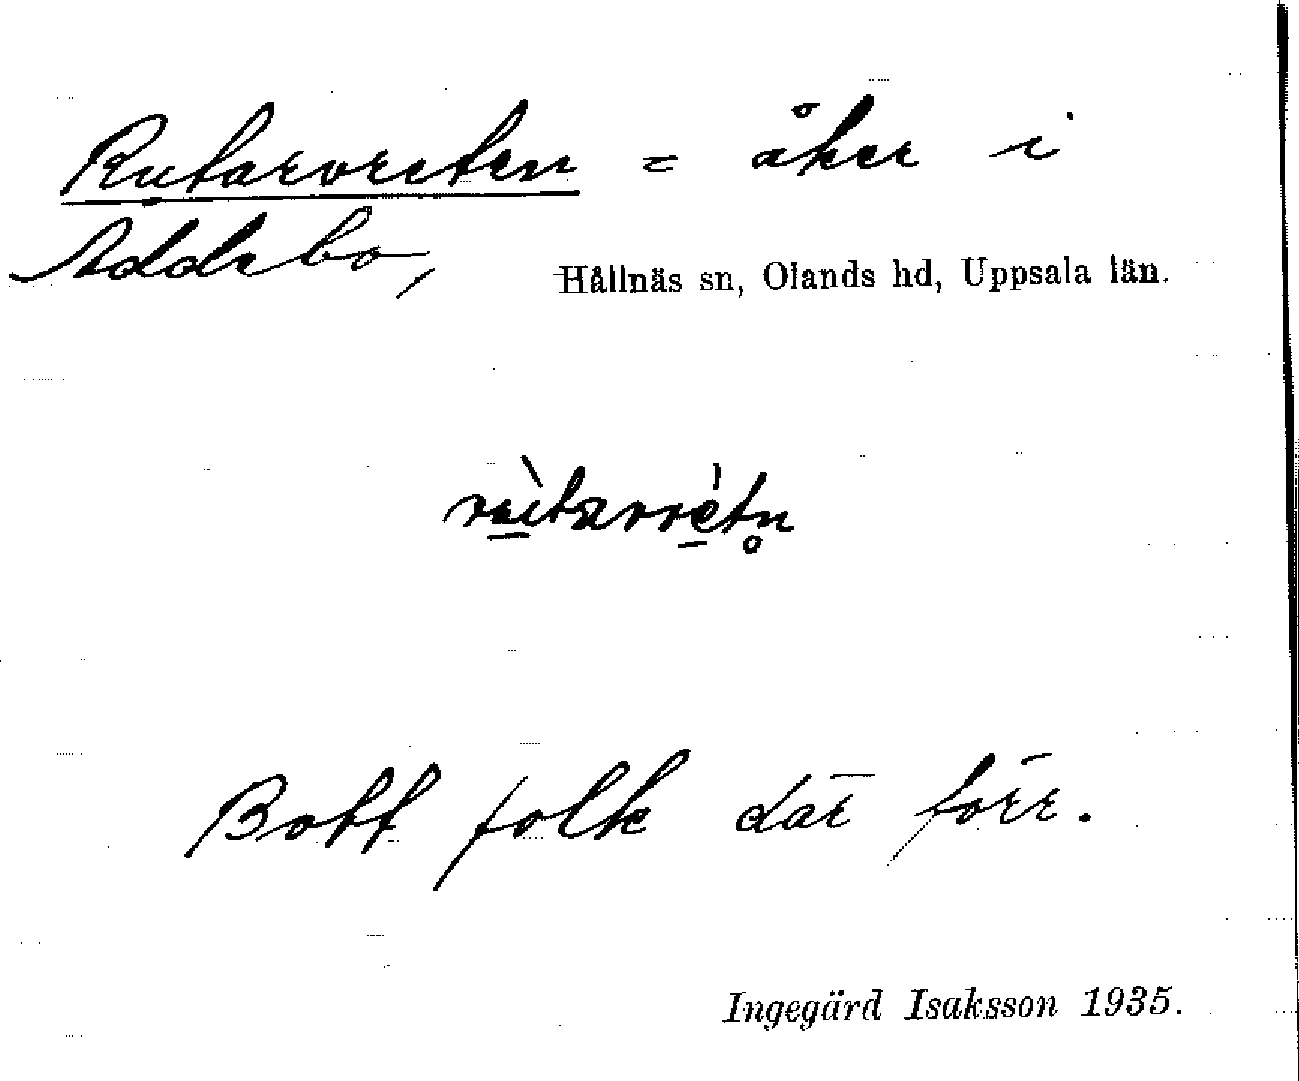 Rutarvreten = åker i
Addebo,
Hållnäs sn, Olands hd, Uppsala län.
Bott folk där förr.
Ingegärd Isaksson 1935.